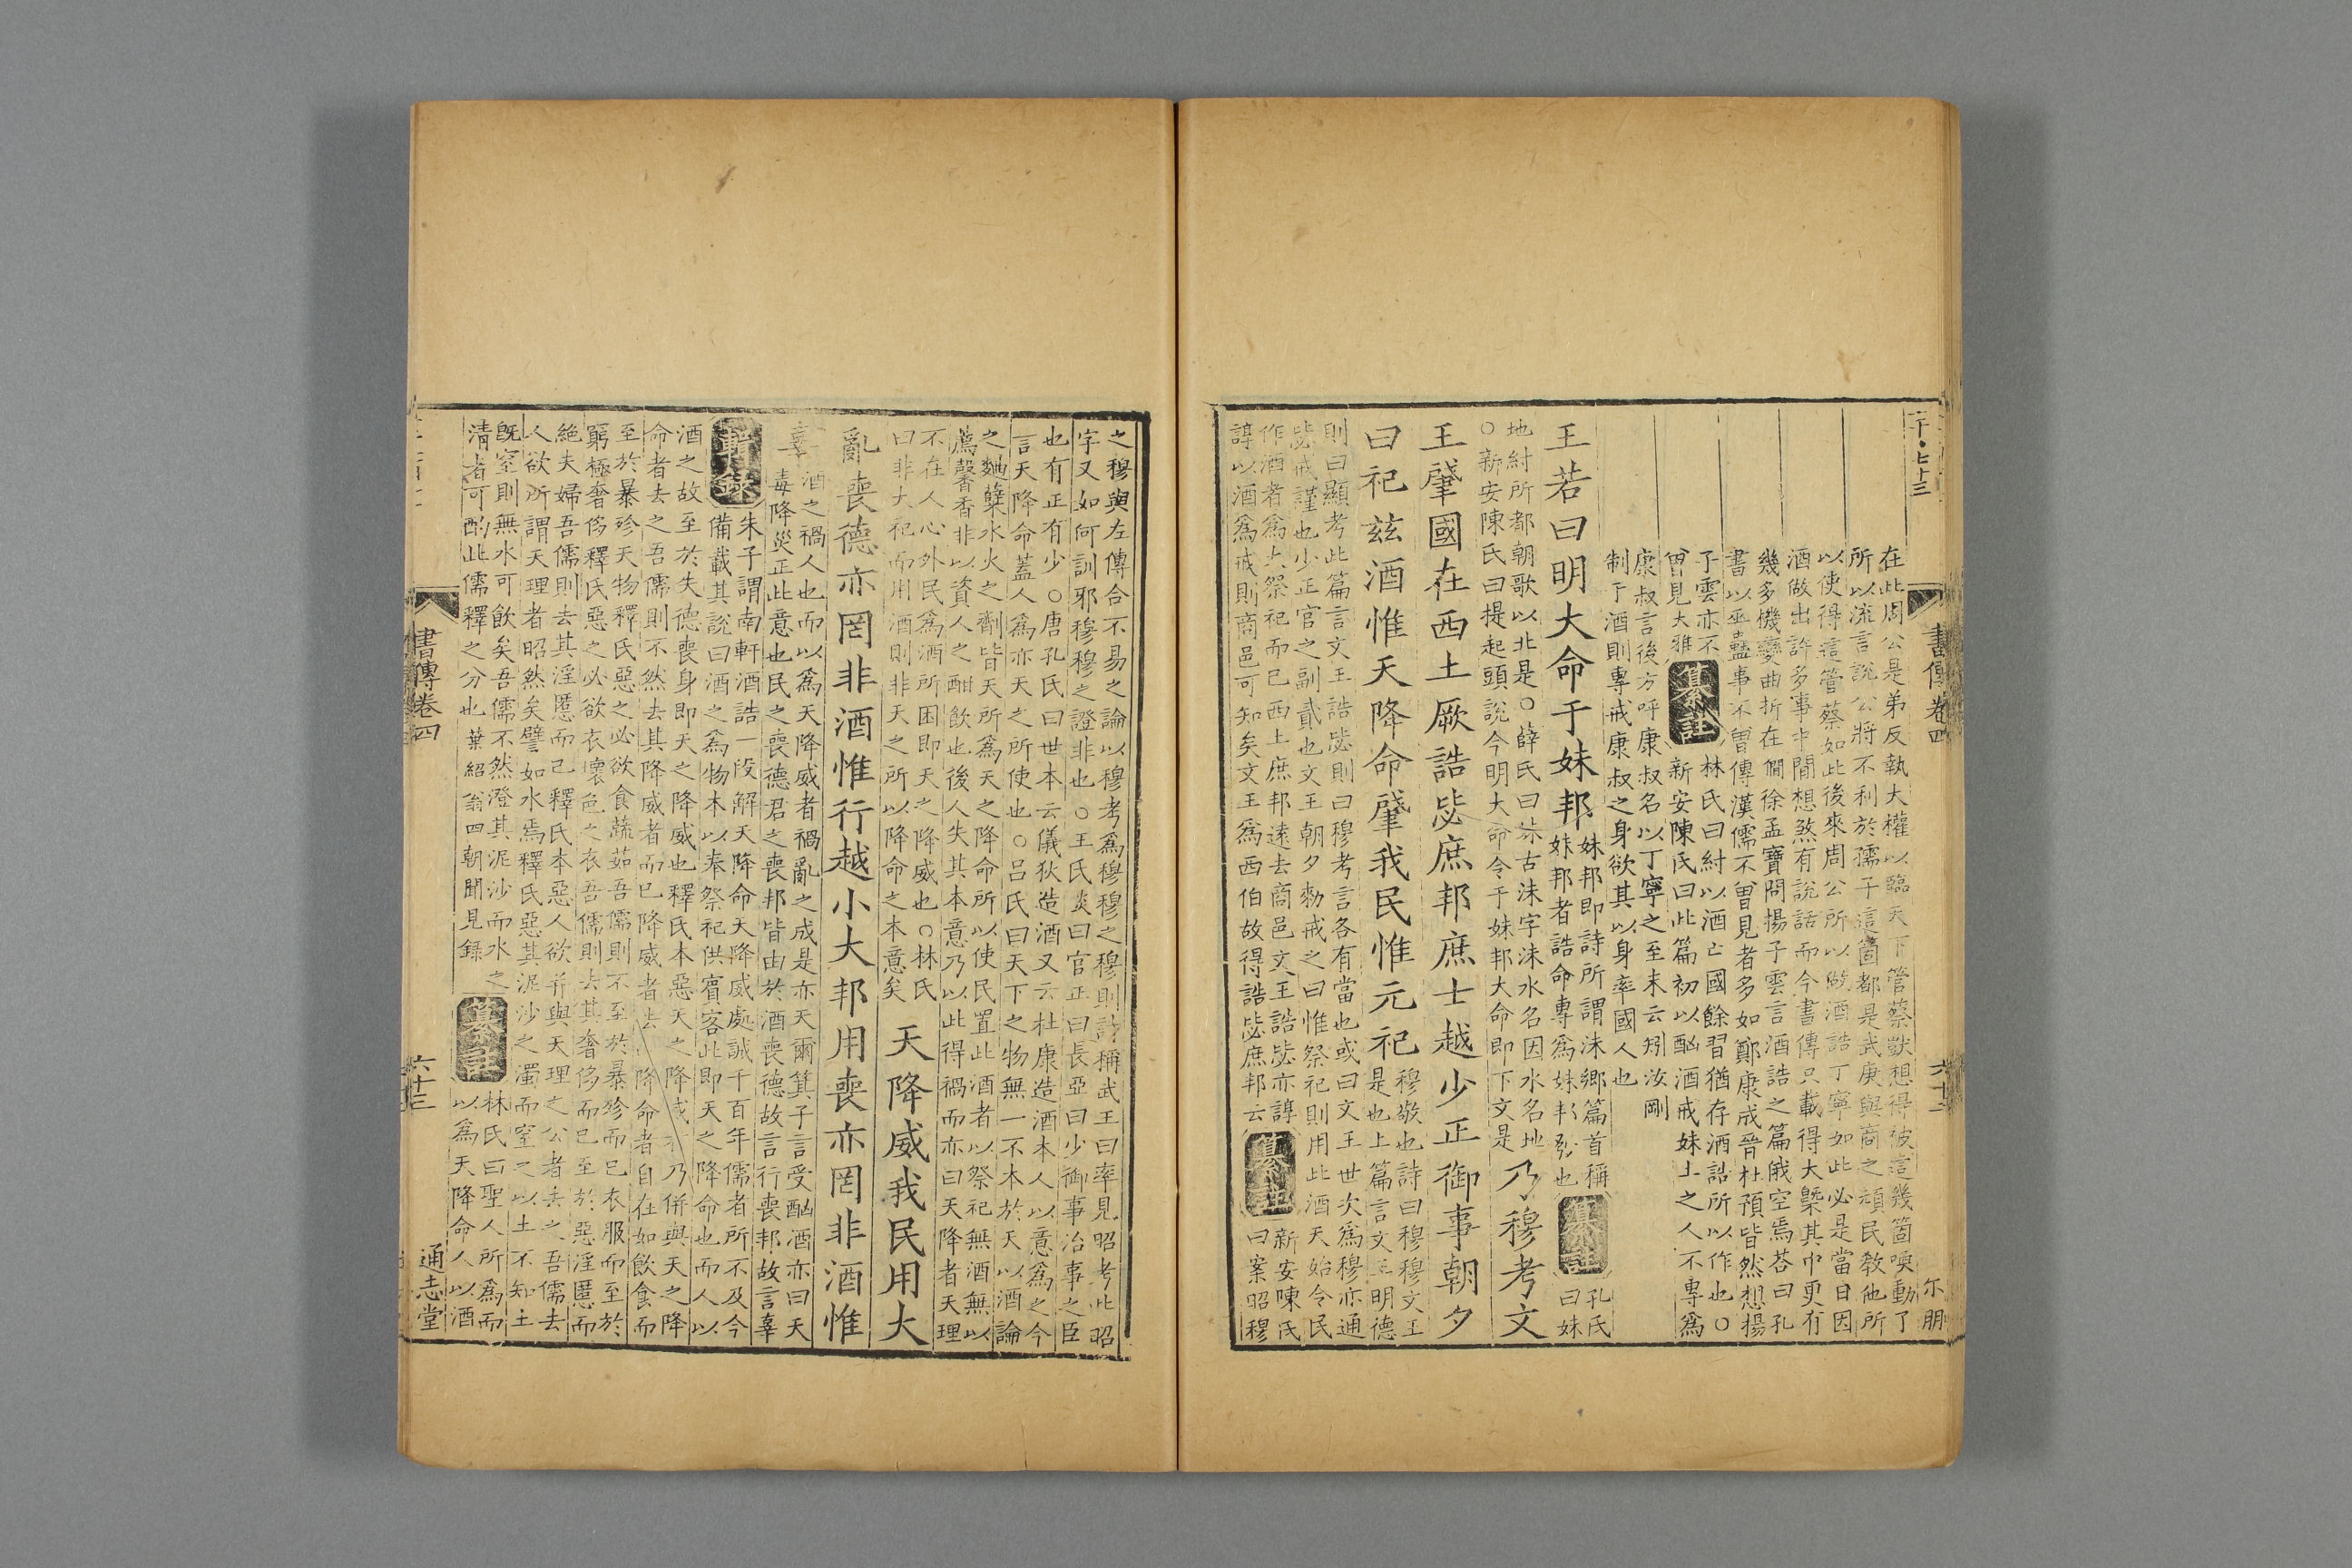 二千。七十三
書傳卷四
六十二
尔朋
在此周公是弟反執大權以臨天下管蔡獃想得被這幾箇喚動了
所以流言說公將不利於孺子這箇都是武庚與商之頑民敎他所
以使得這管蔡如此後來周公所以做酒誥丁寧如此必是當日因
酒做出許多事中間想煞有說話而今書傳只載得大槩其中更有
幾多機變曲折在僩徐孟寶問揚子雲言酒誥之篇俄空焉荅曰孔
書以巫蠱事不曾傳漢儒不曾見者多如鄭康成晉杜預皆然想揚
子雲亦不
曾見大雅
纂註
林氏曰紂以酒亡國餘習猶存酒誥所以作也○
新安陳氏曰此篇初以酗酒戒妹土之人不專爲
康叔言後方呼康叔名以丁寧之至末云矧汝剛
制于酒則專戒康叔之身欲其以身率國人也
王若曰明大命于妹邦
妹邦即詩所謂沬鄉篇首稱
妹邦者誥命專爲妹邦發也
纂註
孔氏
曰妹
地紂所都朝歌以北是○薛氏曰古沬字沬水名因水名地
○新安陳氏曰提起頭說今明大命令于妹邦大命即下文是
乃穆考文
王肇國在西土厥誥毖庶邦庶士越少正御事朝夕
曰祀茲酒惟天降命肇我民惟元祀
穆敬也詩曰穆穆文王
是也上篇言文王明德
則曰顯考此篇言文王誥毖則曰穆考言各有當也或曰文王世次爲穆亦通
毖戒謹也少正官之副貳也文王朝夕勑戒之曰惟祭祀則用此酒天始令民
作酒者爲大祭祀而已西土庶邦遠去商邑文王誥毖亦諄
諄以酒爲戒則商邑可知矣文王爲西伯故得誥毖庶邦云
纂註
新安陳氏
曰案昭穆
之穆與左傳合不易之論以穆考爲穆穆之穆則詩稱武王曰率見昭考此昭
字又如何訓邪穆穆之證非也○王氏炎曰官正曰長亞曰少御事治事之臣
也有正有少○唐孔氏曰世本云儀狄造酒又云杜康造酒本人以意爲之今
言天降命蓋人爲亦天之所使也○呂氏曰天下之物無一不本於天以酒論
之麴糵水火之劑皆天所爲天之降命所以使民置此酒者以祭祀無酒無以
薦馨香非以資人之酣飲也後人失其本意乃以此得禍而亦曰天降者天理
不在人心外民爲酒所困即天之降威也○林氏
曰非大祀而用酒則非天之所以降命之本意矣
天降威我民用大
亂喪德亦罔非酒惟行越小大邦用喪亦罔非酒惟
辜
酒之禍人也而以爲天降威者禍亂之成是亦天爾箕子言受酗酒亦曰天
毒降災正此意也民之喪德君之喪邦皆由於酒喪德故言行喪邦故言辜
輯錄
朱子謂南軒酒誥一段解天降命天降威處誠千百年儒者所不及今
備載其說曰酒之爲物本以奉祭祀供賓客此即天之降命也而人以
酒之故至於失德喪身即天之降威也釋氏本惡天之降威者乃併與天之降
命者去之吾儒則不然去其降威者而已降威者去而降命者自在如飲食而
至於暴殄天物釋氏惡之必欲食蔬茹吾儒則不至於暴殄而已衣服而至於
窮極奢侈釋氏惡之必欲衣壞色之衣吾儒則去其奢侈而已至於惡淫慝而
絕夫婦吾儒則去其淫慝而已釋氏本惡人欲并與天理之公者去之吾儒去
人欲所謂天理者昭然矣譬如水焉釋氏惡其泥沙之濁而窒之以土不知土
旣窒則無水可飲矣吾儒不然澄其泥沙而水之
清者可酌此儒釋之分也葉紹翁四朝聞見錄
纂註
林氏曰聖人所爲而
以爲天降命人以酒
書傳卷四
六十三
通志堂